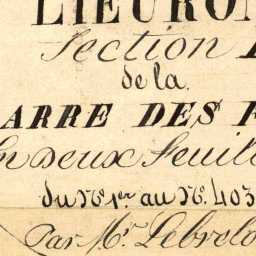 LIEURON
Section
de la
ARRE DES F
En Deux Feuill
du N° 1er au N°. 403
Par Mr. Lebreto